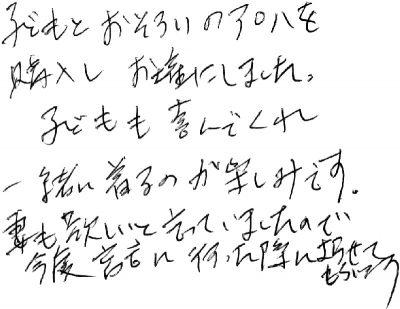 子どもとおそろいのアロハを
購入しお揃にしました。
子どもも喜んでくれ
一緒に着るのが楽しみです。
妻も欲しいと言っていましたので
今度 に行った際に させて
もらいます